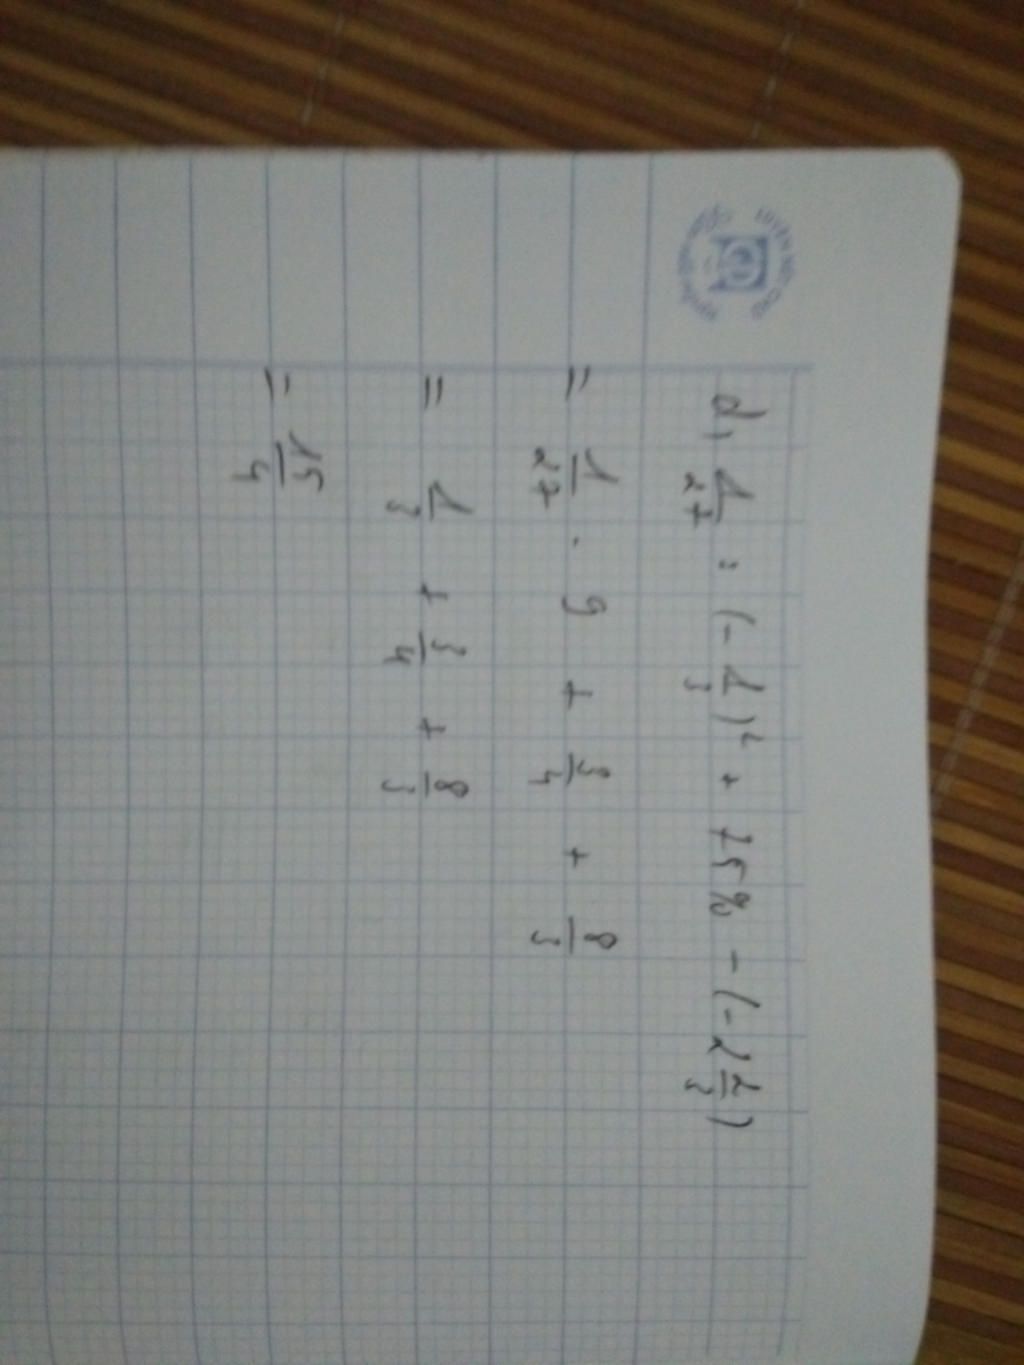 d, 1/27 : (-1/3)² + 75% - (-2 2/3)
= 1/27 . 9 + 3/4 + 8/3
= 1/3 + 3/4 + 8/3
= 15/4